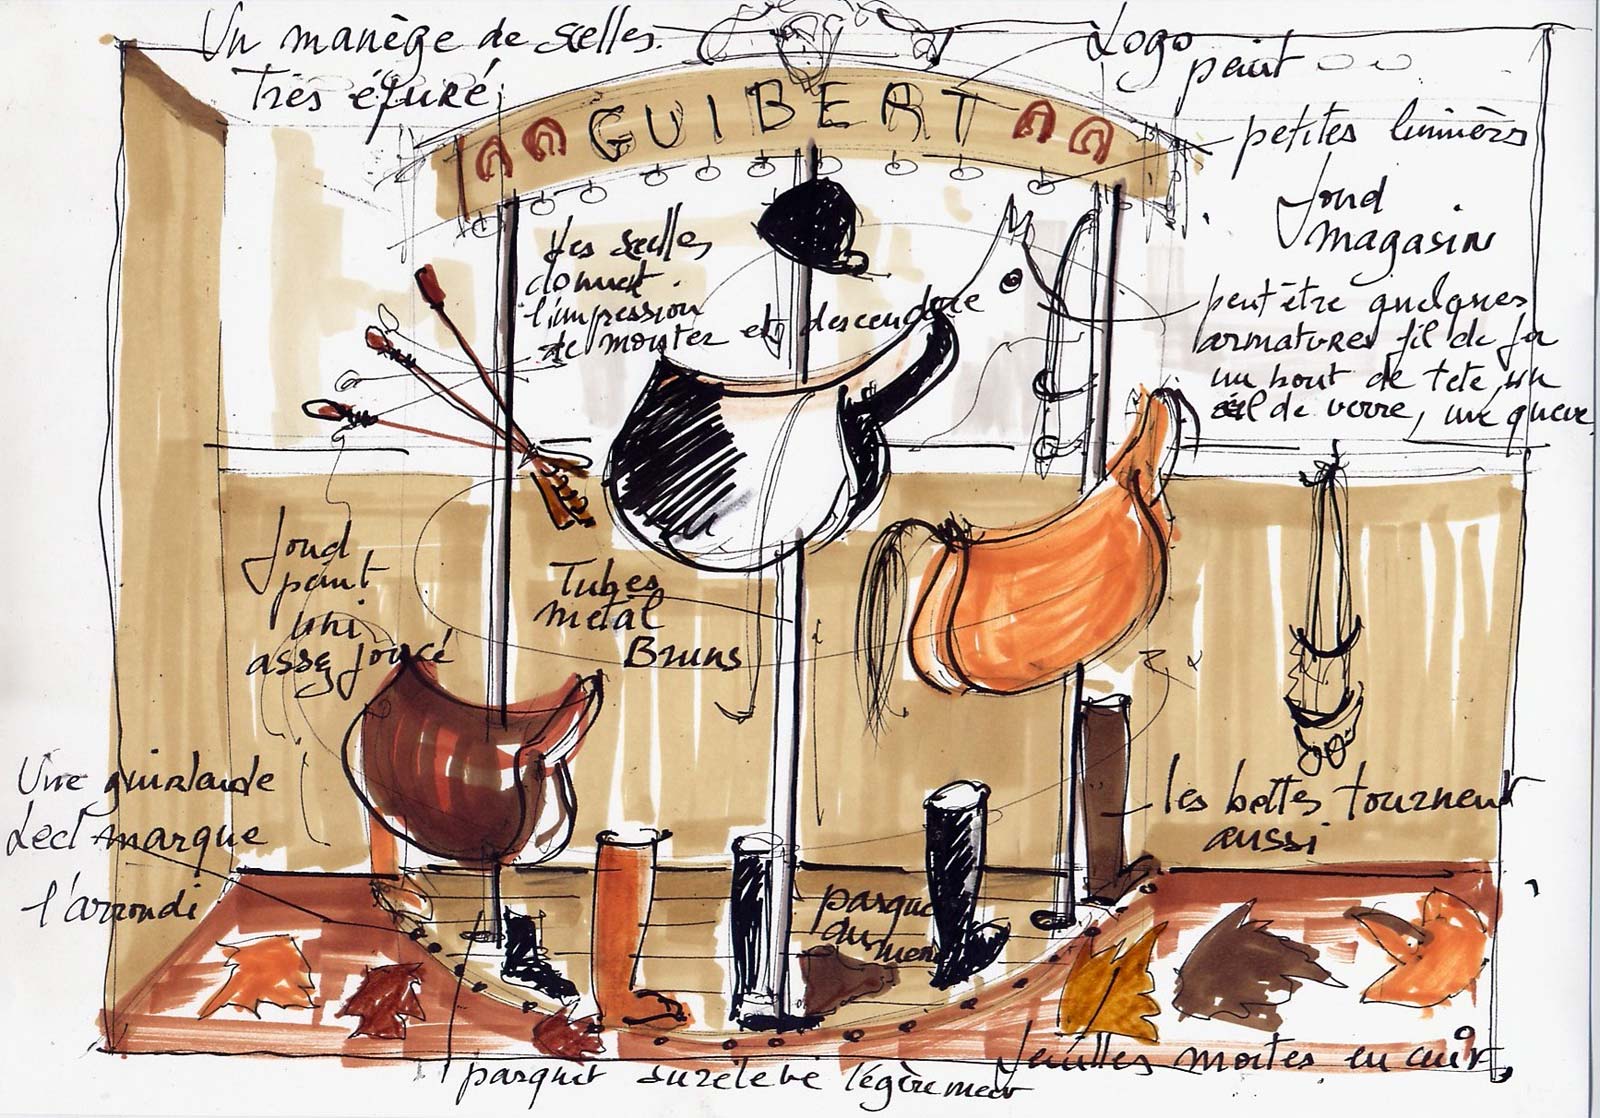 Un manège de selles.
très épuré
Logo
peint
GUIBERT
petites lumièrs
fond
magasin
les selles
donnent
l'impression
de monter et descendre
peut-être quelques
armatures fil de fer
un bout de tete, un
œil de verre, une queue
fond
peint
uni
assez foncé
Tubes
metal
Bruns
Une guirlande
Lect marque
l'arrondi
les bottes tournent
aussi
parquet
feuilles mortes en cuir,
parquet surélevé légèrement